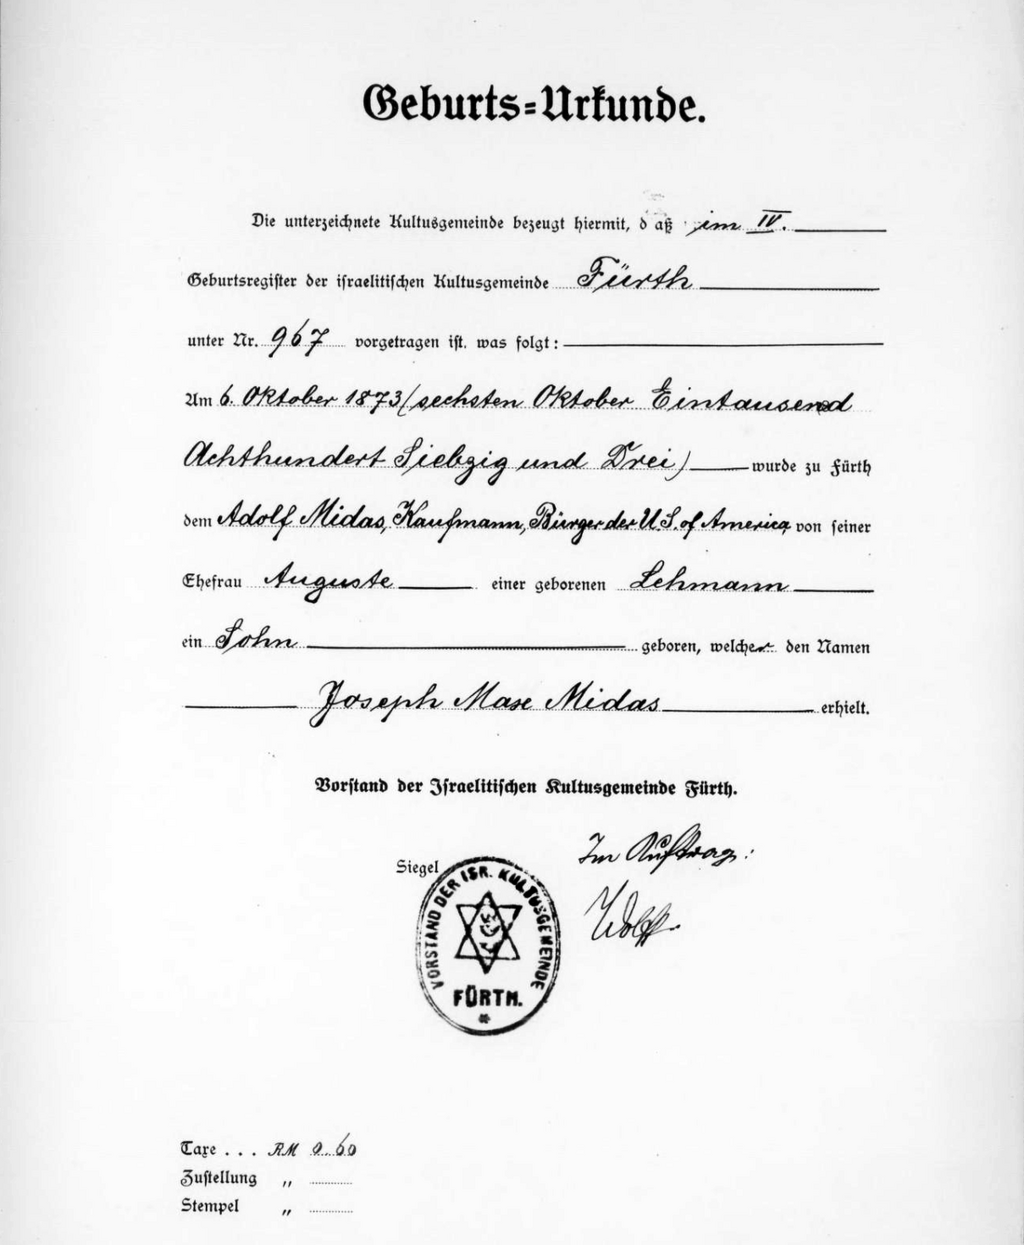 Geburts=Urkunde.
Die unterzeichnete Kultusgemeinde bezeugt hiermit, daß im IV.
Geburtsregister der israelitischen Kultusgemeinde Fürth
unter Nr. 967 vorgetragen ist, was folgt:
Am 6. Oktober 1873 (sechsten Oktober Eintausend
Achthundert Siebzig und Drei) wurde zu Fürth
dem Adolf Midas, Kaufmann, Bürger der U.S. of America von seiner
Ehefrau Auguste einer geborenen Lehmann
ein Sohn geboren, welcher den Namen
Joseph Max Midas erhielt.
Vorstand der Israelitischen Kultusgemeinde Fürth.
Im Auftrag:
Siegel
VORSTAND DER ISR. KULTUSGEMEINDE
FÜRTH.
Wolff.
Taxe . . . RM 0.60
Zustellung "
Stempel "